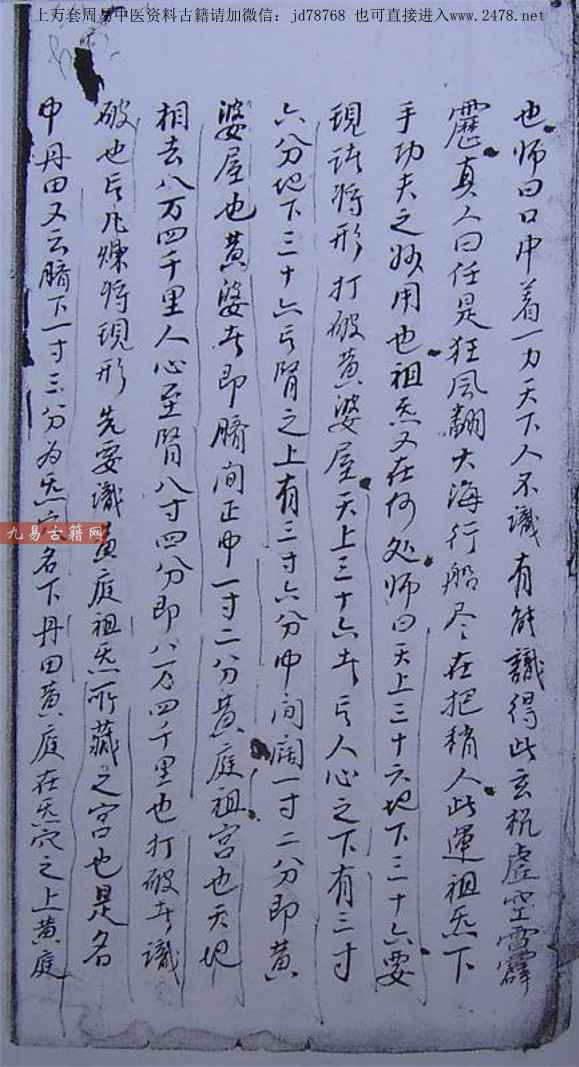 上万套周易中医资料古籍请加微信：jd78768 也可直接进入www.2478.net
也师曰口中着一力天下人不識有能識得此玄机虚空雷霹
靂真人曰任是狂风翻大海行船尽在把稍人此運祖炁下
手功夫之妙用也祖炁又在何处师曰天上三十六地下三十六要
現諸将形打破黄婆屋天上三十六者言人心之下有三寸
六分地下三十六言腎之上有三寸六分中间阔一寸二分即黄
婆屋也黄婆者即臍间正中一寸二分黄庭祖宮也天地
相去八万四千里人心至腎八寸四分即八万四千里也打破者識
破也言凡煉将現形先要識黄庭祖炁所藏之宮也是名
中丹田又云臍下一寸三分为炁穴名下丹田黄庭在炁穴之上黄庭
九易古籍网